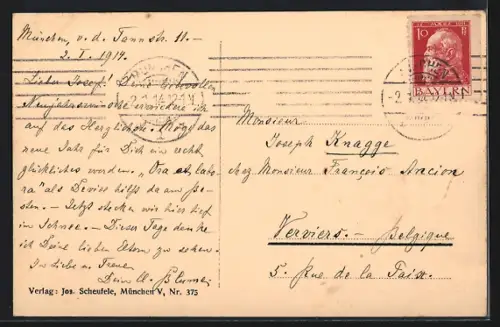 München, v. d. Tannstr. 11.–
2. I. 1914.
Lieber Josef! Deine
Neujahrswünsche erwidere ich
auf das Herzlichste. Möge das
neue Jahr für Dich ein recht
glückliches werden. „Ora et labo-
ra" als Devise hilft da am be-
sten. – Jetzt stecken wir hier tief
im Schnee. – Dieser Tage denke
ich Deine lieben Eltern zu sehen.
In Liebe u. Treue
Dein
Verlag: Jos. Scheufele, München V, Nr. 375
10
BAYERN
Monsieur
Joseph Knagge
chez Monsieur François Ancion
Verviers. – Belgique
5. Rue de la Paix.